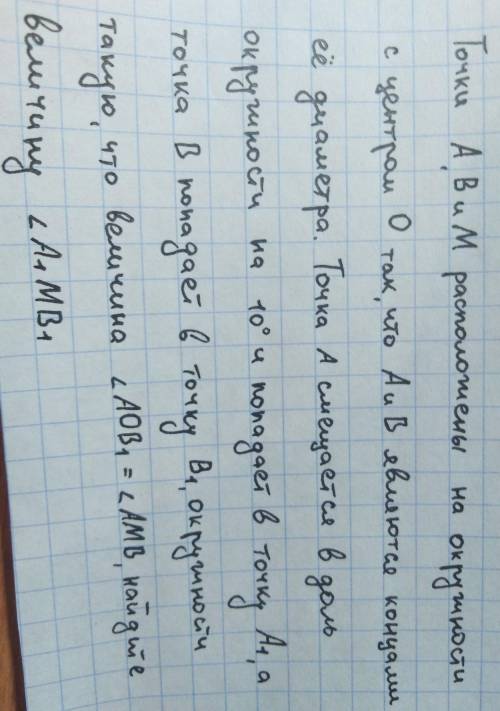 Точки А, В и М расположены на окружности
с центром О так, что А и В являются концами
её диаметра. Точка А смещается в доль
окружности на 10° и попадает в точку А₁, а
точка В попадает в точку В₁, окружности
такую, что величина ∠АОВ₁ = ∠АМВ, найдите
величину ∠А₁МВ₁